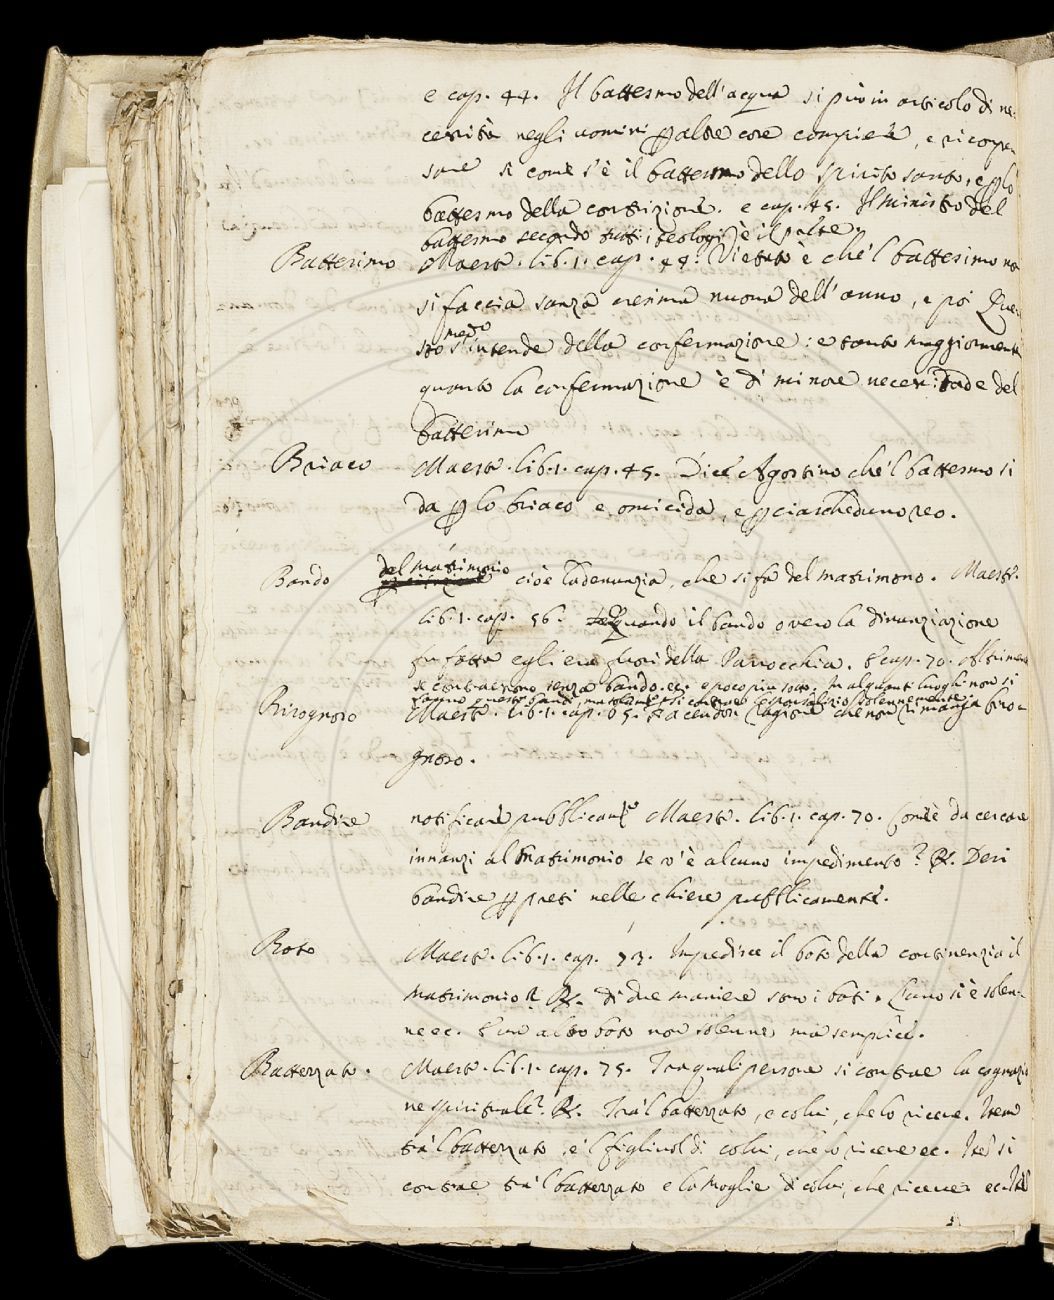 e cap. 44. Il battesmo dell'acqua si può in articolo di ne-
cessità negli uomini p altre cose compiere, e ricompen
sare si come s'è il battesmo dello spirito santo, e p lo
battesmo della contrizione. e cap. 45. Il ministro del
battesmo secondo tutti i teologi è il prete.
Battesimo Maestr. lib. 1. cap. 44. Vietato è che'l battesimo no
si faccia sanza cresima nuova dell'anno, e poi Que-
sto medo s'intende della confermazione: e tanto maggiormente
quanto la confermazione è di minore necessitade del
battesimo
Briaco Maestr. lib. 1. cap. 45. Dice Agostino che'l battesmo si
da p lo briaco e omicida, e p ciascheduno reo.
Bando del matrimonio cioè la denunzia, che si fa del matrimonio. Maestr.
lib. 1. cap. 56. quando il bando overo la dinunziazione
fu fatta egli era fuori della Parrocchia. E cap. 70. Altrimente
si contraessono senza bando. ec. e poco più sotto. In alquanti luoghi non si
fanno questi bandi, ma si contrae solennemente
Birognoso Maestr. lib. 1. cap. 65. Facendosi ragione che non rimanga biro-
gnoso.
Bandire notificare pubblicamte Maestr. lib. 1. cap. 70. Com'è da cercare
innanzi al Matrimonio se v'è alcuno impedimento? R. Desi
bandire p preti nelle chiese pubblicamente.
Boto Maestr. lib. 1. cap. 73. Impedisce il boto della continenzia il
matrimonio? R. di due maniere sono i boti. L'uno si è solen-
ne ec. E un altro boto non solenne ma semplice.
Battezzato. Maestr. lib. 1. cap. 75. Tra quali persone si contrae la cognazio
ne spirituale? R. Tra'l battezzato, e colui, che lo riceve. Item
tra'l battezzato, e'l figliuol di colui, che lo riceve ec. Itē si
contrae tra'l battezzato e la Moglie di colui, che riceve ec.